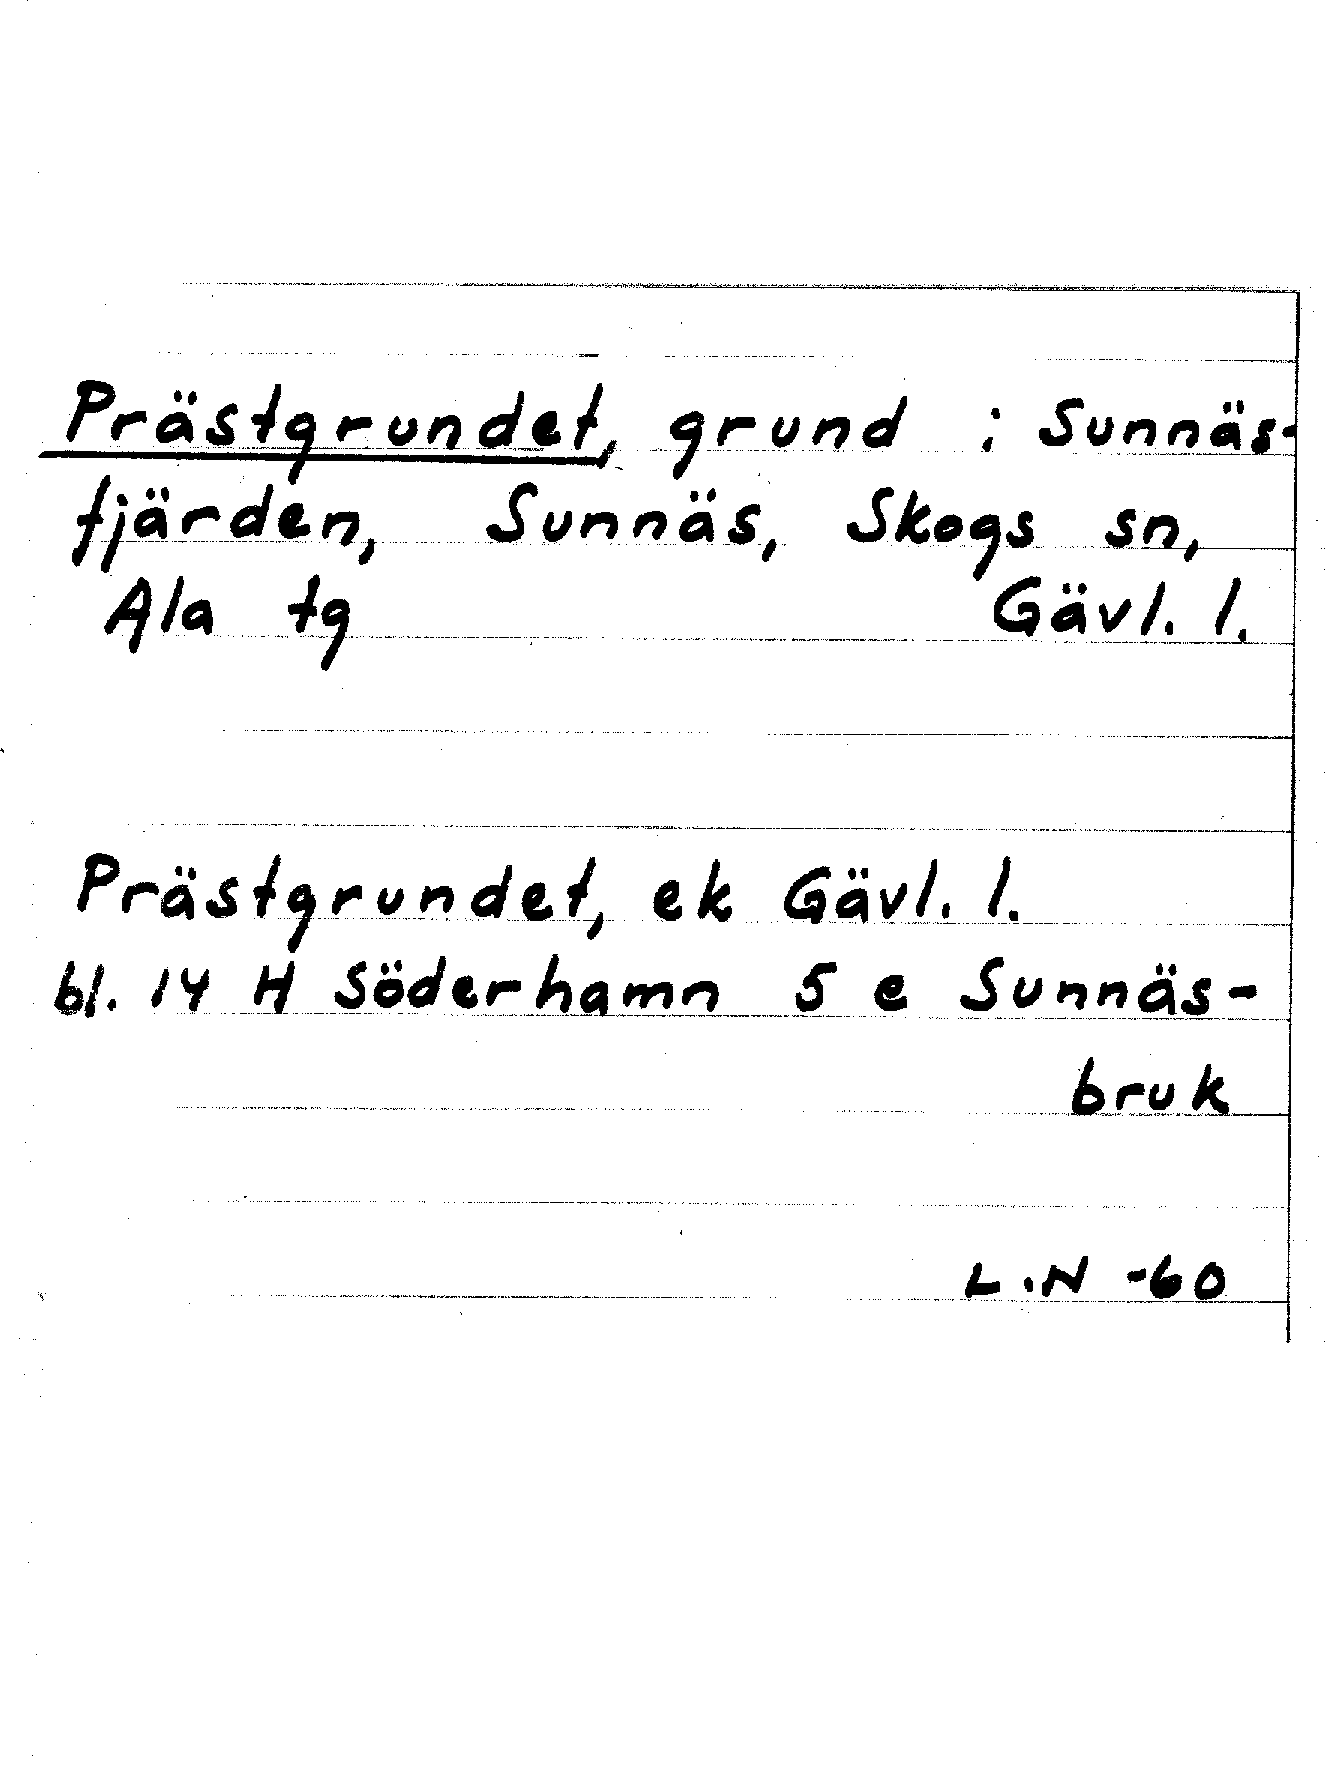 Prästgrundet, grund i Sunnäs-
fjärden, Sunnäs, Skogs sn,
Ala tg Gävl. l.
Prästgrundet, ek Gävl. l.
bl. 14 H Söderhamn 5 e Sunnäs-
bruk
L.N -60